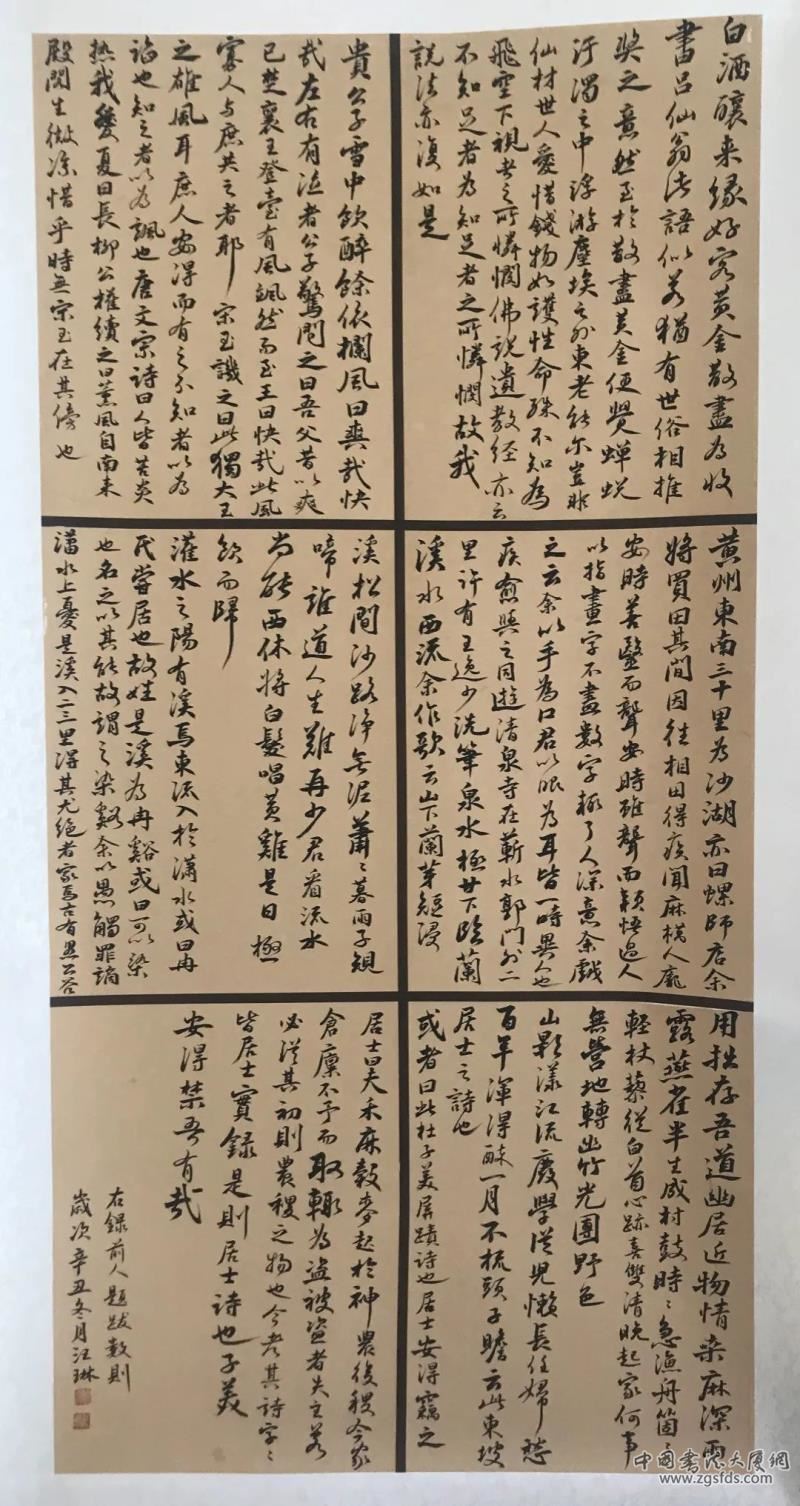 白酒釀来緣好客黃金散盡為收
書呂仙翁此語似若猶有世俗相推
奖之意然至於散盡黃金便覺蝉蜕
汙濁之中浮游塵埃之外東老能尔豈非
仙材世人愛惜錢物如護性命殊不知為
飛空下視者之所憐憫佛說遺教经亦云
不知足者為知足者之所憐憫故我
説法亦復如是
貴公子雪中飲醉餘依欄風曰爽哉快
哉左右有泣者公子驚問之曰吾父昔以爽
已楚襄王登臺有風颯然而至王曰快哉此風
寡人与庶共之者耶宋玉譏之曰此獨大王
之雄風耳庶人安得而有之不知者以為
諂也知之者以為諷也唐文宗詩曰人皆苦炎
热我愛夏日長柳公權續之曰薰風自南来
殿閣生微凉惜乎時無宋玉在其傍也
黄州東南三十里為沙湖亦曰螺師店余
将買田其間因往相田得疾聞麻橋人龐
安時善醫而聾安時雖聾而穎悟过人
以指畫字不盡數字輒了人深意余戲
之云余以手為口君以眼為耳皆一時異人也
疾愈與之同遊清泉寺在蘄水郭門外二
里許有王逸少洗筆泉水極甘下臨蘭
溪水西流余作歌云山下蘭芽短浸
溪松間沙路净無泥蕭〻暮雨子規
啼誰道人生難再少君看流水
尚能西休将白髮唱黄雞是日極
飲而歸
灌水之陽有溪焉東流入於瀟水或曰冉
氏嘗居也故姓是溪為冉谿或曰可以染
也名之以其能故謂之染谿余以愚觸罪謫
瀟水上憂是溪入二三里得其尤绝者家焉古有愚公谷
用拙存吾道幽居近物情桑麻深雨
露燕雀半生成村鼓時〻急漁舟箇〻
輕杖藜從白首心跡喜雙清晚起家何事
無營地轉幽竹光團野色
山影漾江流廢學從兒懶長任婦愁
百年渾得醉一月不梳頭子瞻云此東坡
居士之詩也
或者曰此杜子美屏蹟詩也居士安得竊之
居士曰夫禾麻穀麥起於神農後稷今家
倉廩不予而取輒為盗被盗者失主若
必從其初則農稷之物也今考其詩字〻
皆居士實録是則居士詩也子美
安得禁吾有哉
右録前人題跋數則
歲次辛丑冬月汪琳
中國書法大厦網
www.zgsfds.com